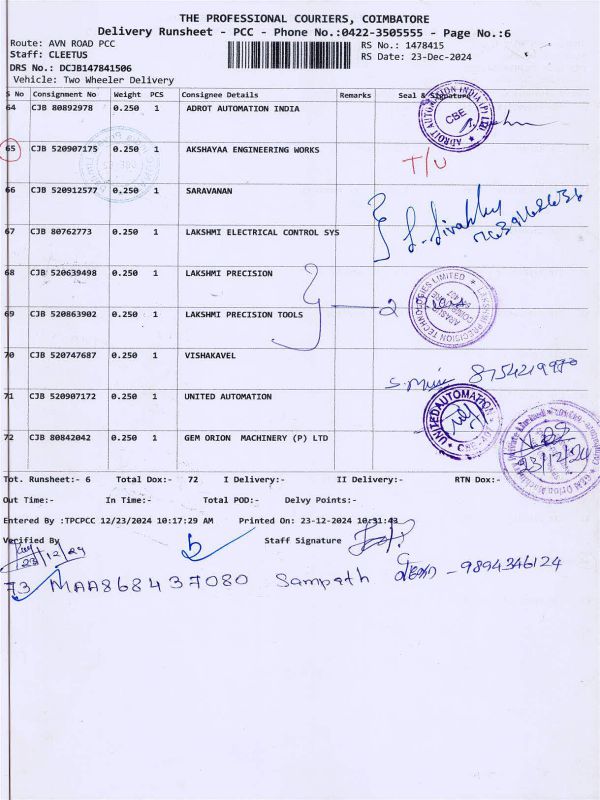 THE PROFESSIONAL COURIERS, COIMBATORE
Delivery Runsheet - PCC - Phone No.:0422-3505555 - Page No.:6
Route: AVN ROAD PCC RS No.: 1478415
Staff: CLEETUS RS Date: 23-Dec-2024
DRS No.: DCJB147841506
Vehicle: Two Wheeler Delivery
S No Consignment No Weight PCS Consignee Details Remarks Seal & Signature
64 CJB 80892978 0.250 1 ADROT AUTOMATION INDIA
ADROIT AUTOMATION INDIA (P) LTD
CBE
65 CJB 520907175 0.250 1 AKSHAYAA ENGINEERING WORKS
T/U
66 CJB 520912577 0.250 1 SARAVANAN
67 CJB 80762773 0.250 1 LAKSHMI ELECTRICAL CONTROL SYS
68 CJB 520639498 0.250 1 LAKSHMI PRECISION
2
LAKSHMI PRECISION TECHNOLOGIES LIMITED
69 CJB 520863902 0.250 1 LAKSHMI PRECISION TOOLS
70 CJB 520747687 0.250 1 VISHAKAVEL
71 CJB 520907172 0.250 1 UNITED AUTOMATION
UNITED AUTOMATION
72 CJB 80842042 0.250 1 GEM ORION MACHINERY (P) LTD
23/12/24
Tot. Runsheet:- 6 Total Dox:- 72 I Delivery:- II Delivery:- RTN Dox:-
Out Time:- In Time:- Total POD:- Delvy Points:-
Entered By :TPCPCC 12/23/2024 10:17:29 AM Printed On: 23-12-2024 10:31:43
Verified By Staff Signature
23/12/24
73 MAA868437080 Sampath - 9894346124